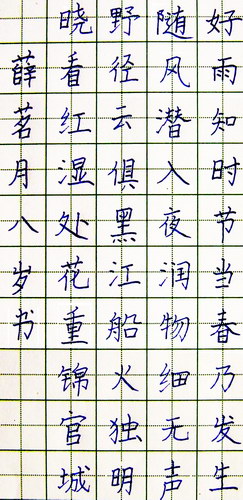 好雨知时节当春乃发生
随风潜入夜润物细无声
野径云俱黑江船火独明
晓看红湿处花重锦官城
薛茗月八岁书